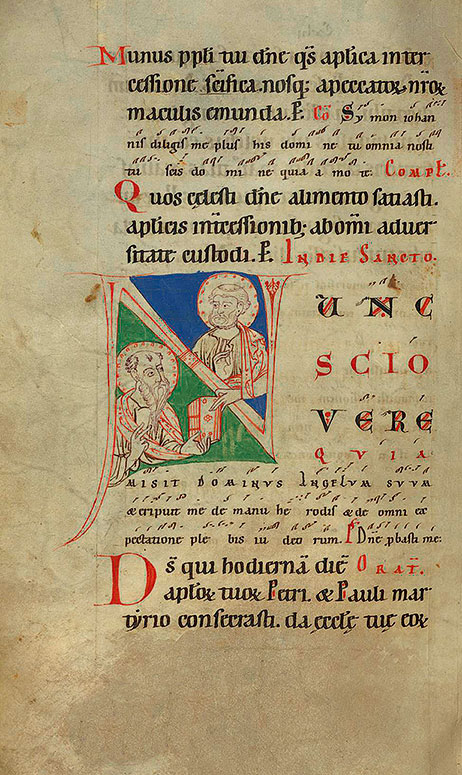 Munus ppli tui dne qs aplica inter
cessione scifica. nosq; a peccatoꝝ nroꝝ
maculis emunda. P. Cō Symon iohan
nis diligis me plus his domi ne tu omnia nosti
tu scis do mi ne quia a mo te. Compl.
Quos celesti dne alimento satiasti.
aplicis intcessionib; ab omi aduer
sitate custodi. P. In die Sancto.
NUNC
SCIO
VERE
QUIA
MISIT DOMINUS ANGELUM SUUM
& eripuit me de manu he rodis & de omni ex
pectatione ple bis iu deo rum. P Dne pbasti me.
Ds qui hodiernā diē Orat.
aploꝝ tuoꝝ Petri. & Pauli mar
tyrio consecrasti. da eccłę tuę eoꝝ